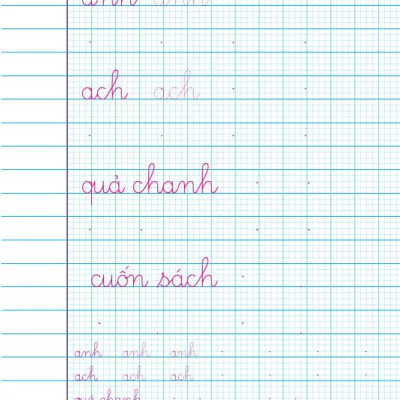 anh anh
ach ach
quả chanh
cuốn sách
anh anh anh
ach ach ach
quả chanh